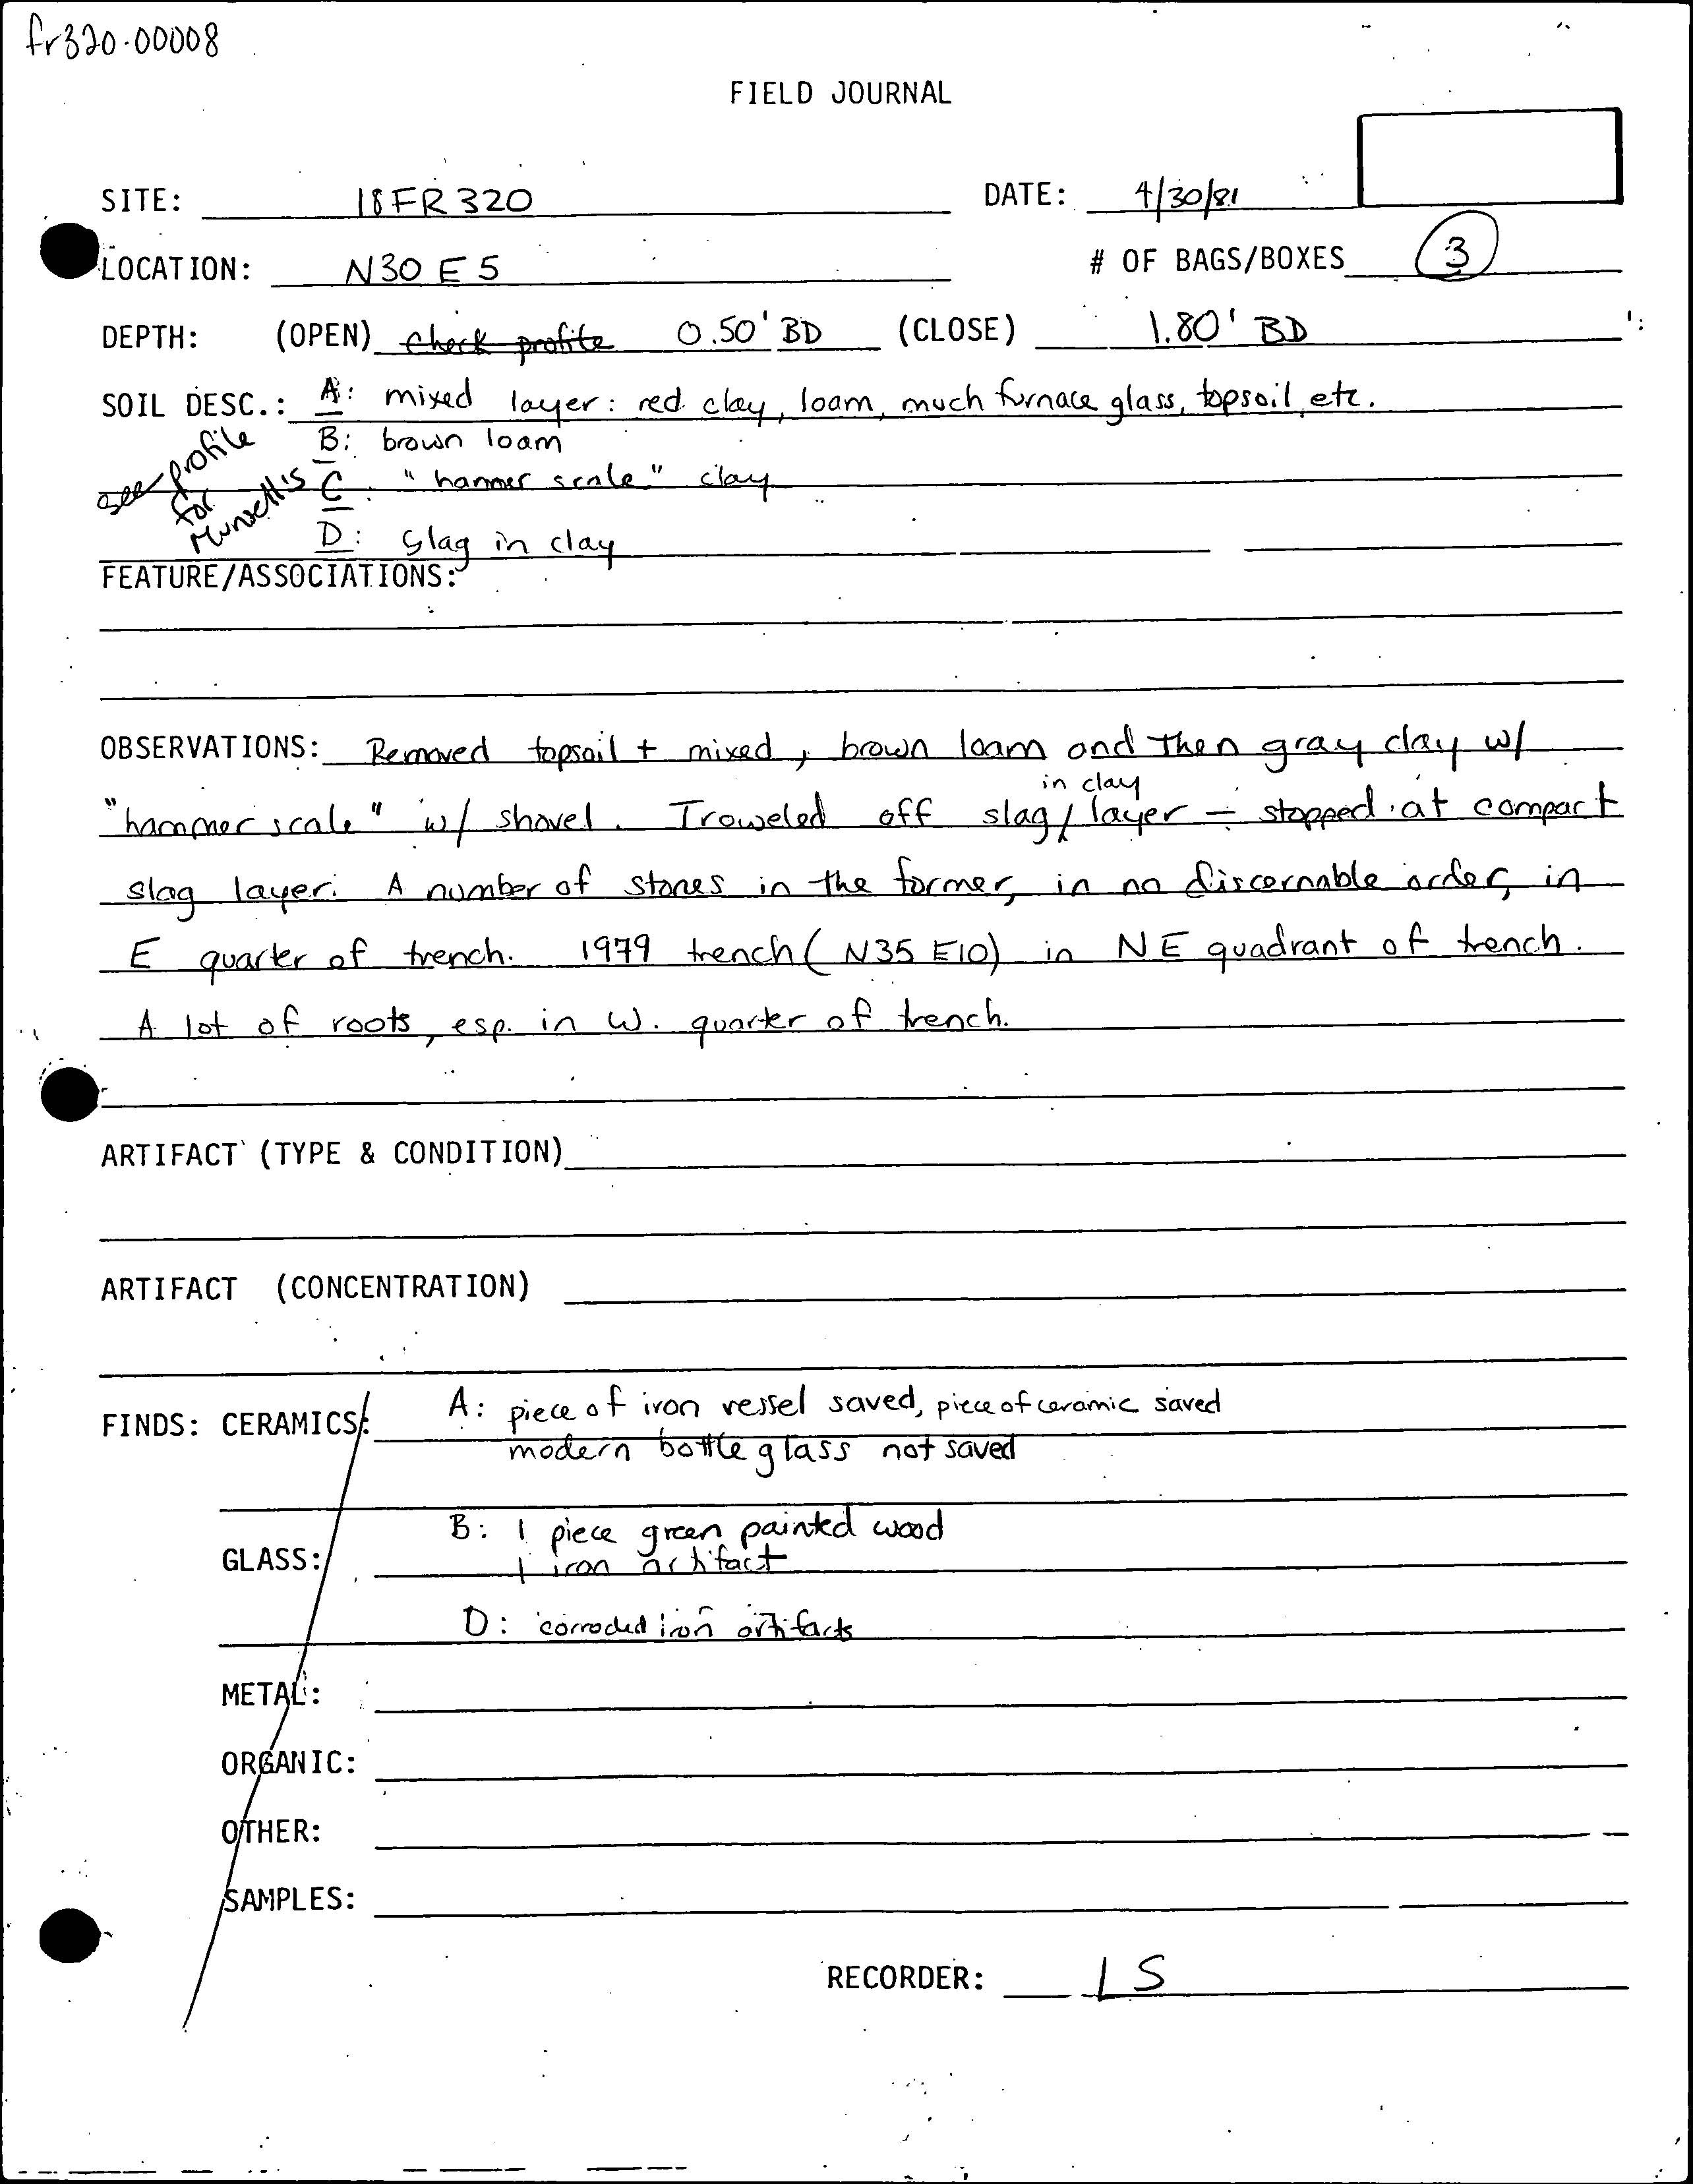 fr320.00008
FIELD JOURNAL
SITE: 18FR320 DATE: 4/30/81
LOCATION: N30 E5 # OF BAGS/BOXES 3
DEPTH: (OPEN) check profile 0.50' BD (CLOSE) 1.80' BD
SOIL DESC.: A: mixed layer: red clay, loam, much furnace glass, topsoil, etc.
B: brown loam
see profile for Munsell's
C: "hammer scale" clay
D: Slag in clay
FEATURE/ASSOCIATIONS:
OBSERVATIONS: Removed topsoil + mixed, brown loam and then gray clay w/
"hammer scale" w/ shovel. Troweled off slag in clay layer - stopped at compact
slag layer. A number of stones in the former, in no discernable order, in
E quarter of trench. 1979 trench (N35 E10) in NE quadrant of trench.
A lot of roots, esp. in W. quarter of trench.
ARTIFACT (TYPE & CONDITION)
ARTIFACT (CONCENTRATION)
FINDS: CERAMICS: A: piece of iron vessel saved, piece of ceramic saved
modern bottle glass not saved
B: 1 piece green painted wood
GLASS: 1 iron artifact
D: corroded iron artifacts
METAL:
ORGANIC:
OTHER:
SAMPLES:
RECORDER: LS